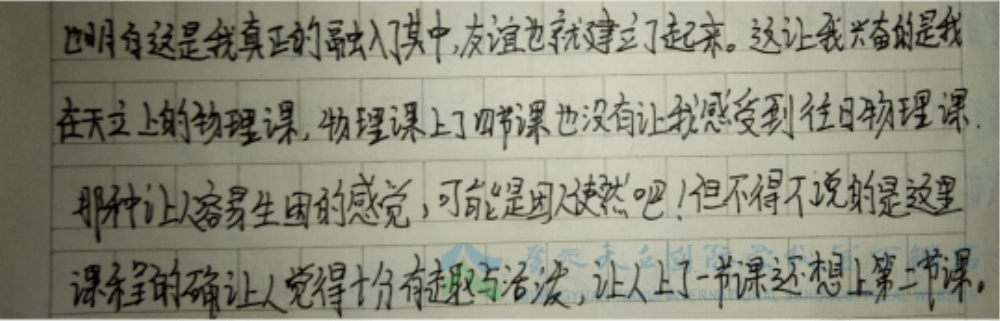 也明白这是我真正的融入了其中,友谊也就建立了起来。这让我兴奋的是我
在天立上的物理课,物理课上了四节课也没有让我感受到往日物理课.
那种让人容易生困的感觉,可能是因人使然吧!但不得不说的是这里
课程的确让人觉得十分有趣与活泼,让人上了一节课还想上第二节课。